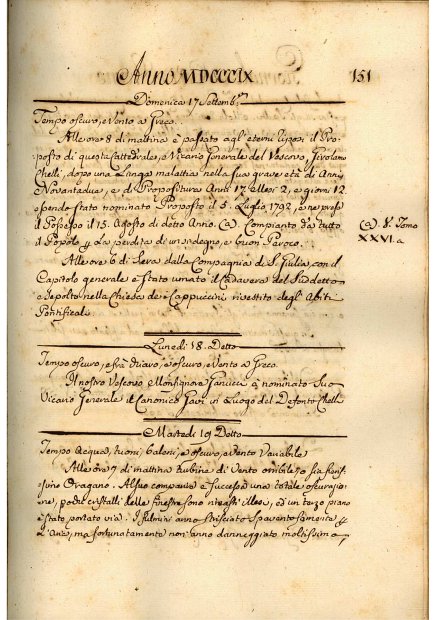 Anno MDCCCIX 151
Domenica 17 Settembre
Tempo oscuro, e Vento a Greco.
Alle ore 8 di mattina è passato agl'eterni riposi il Pro-
posto di questa Cattedrale, e Vicario Generale del Vescovo, Girolamo
Chelli, dopo una Lunga malattia nella sua grave età di Anni
Novantadue, e di Propositura Anni 17 Mesi 2, e giorni 12
essendo stato nominato Proposto il 5. Luglio 1792, e ne prese
il Possesso il 15. Agosto di detto Anno. (a). Compianto da tutto
il Popolo p La perdita di un degno, e buon Paroco.
(a) V. Tomo
XXVI. a
Alle ore 6 di Sera dalla Compagnia di S. Giulia, con il
Capitolo generale è Stato umato il Cadavere del Suddetto
e Sepolto nella Chiesa de Cappuccini rivestito degl'Abiti
Pontificali
Lunedi 18. Detto
Tempo oscuro, e frà chiaro, e oscuro, e Vento a Greco.
Il nostro Vescovo e Monsignore Ganucci à nominato Suo
Vicario Generale il Canonico Gavi in Luogo del Defonto Chelli
Martedi 19 Detto
Tempo Acqua, tuoni, baleni, e oscuro, e Vento Variabile
Alle ore 7 di mattina turbine di Vento orribile, o sia fortis-
simo Oragano. Al suo comparire è successa una totale oscurazio-
ne, pochi cristalli delle finestre sono rimasti illesi, ed un terzo piano
è stato portato via. I fulmini anno Strisciato Spaventosamente p
L'aere, ma fortunatamente non anno danneggiato moltissimo